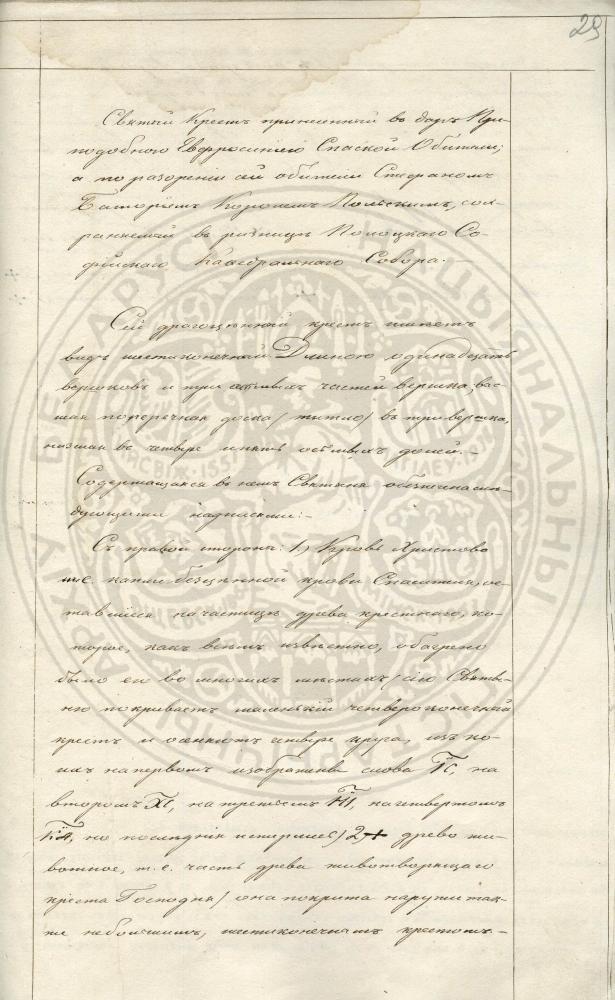 29
Святый Крестъ принесенный въ даръ Пре-
подобною Евфросиніею Спаской Обители;
а по разореніи сей обители Стефаномъ
Баторіемъ Королемъ Польскимъ, сох-
раняемый въ ризницѣ Полоцкаго Со-
фійскаго Каѳедральнаго Собора.
Сей драгоцѣнный крестъ имѣетъ
видъ шестиконечный. Длиною одинадцать
вершковъ и три осьмыхъ частей вершка; вы-
шняя поперечная доска (титло) въ три вершка,
низшая въ четыре и пять осьмыхъ долей. –
Содержащаяся въ немъ Святыня обозначена слѣ-
дующими надписями: –
Съ правой стороны: 1.) Кровь Христова
т.е. капли безцѣнной крови Спасителя, ос-
тавшіеся на частицѣ древа крестнаго, ко-
торое, какъ всѣмъ извѣстно, обагрено
было ею во многихъ мѣстахъ (сію Святы-
ню покриваетъ маленькій четвероконечный
крестъ и осѣняютъ четыре круга, изъ ко-
ихъ на первомъ изображены слова ІС, на
второмъ ХС, на третьемъ НІ, на четвертомъ
КА, но послѣднія истерлись) 2) древо жи-
вотное, т.е. часть древа животворящаго
креста Господня (она покрита наружи так-
же небольшимъ, шестиконечнымъ крестомъ. –
АРХІЎ БЕЛАРУСІ НАЦЫЯНАЛЬНЫ ГІСТАРЫЧНЫ